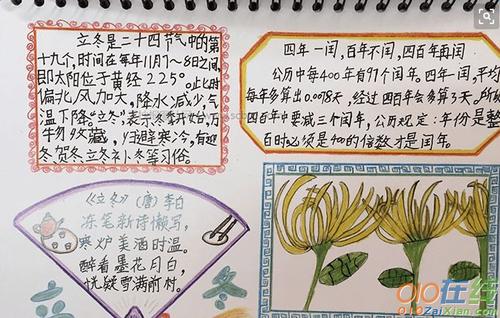 立冬是二十四节气中的第
十九个,时间在每年11月7~8日之间,
即太阳位于黄经225°。此时
偏北风加大,降水减少,气
温下降“立冬”表示冬季开始,万
物收藏,归避寒冷,有迎
冬、贺冬、立冬补冬等习俗
四年一闰,百年不闰,四百年再闰
公历中每400年有97个闰年,四年一闰,平均
每年多算出0.0078天,经过四百年会多算3天。所以
四百年中要减三个闰年,公历规定:年份是整
百时必须是400的倍数才是闰年。
《立冬》(唐)李白
冻笔新诗懒写,
寒炉美酒时温。
醉看墨花月白,
恍疑雪满前村。
冬
冬
010在线
010ZaiXian.com